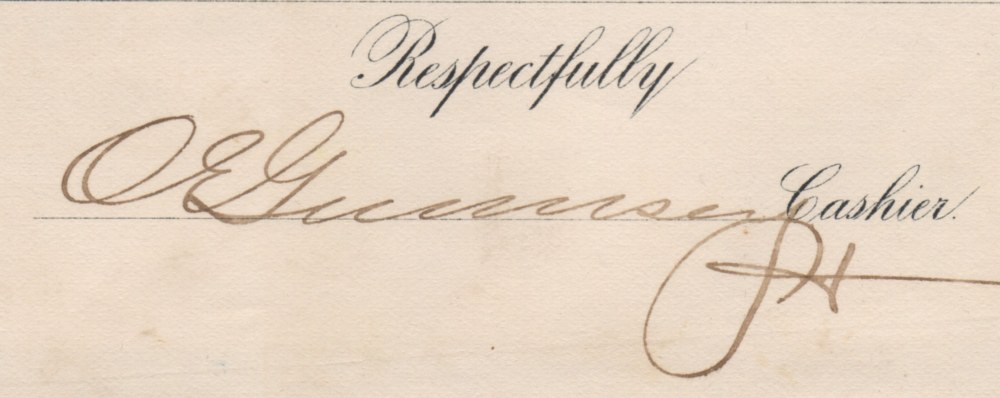 Respectfully
O E Guernsey Cashier.